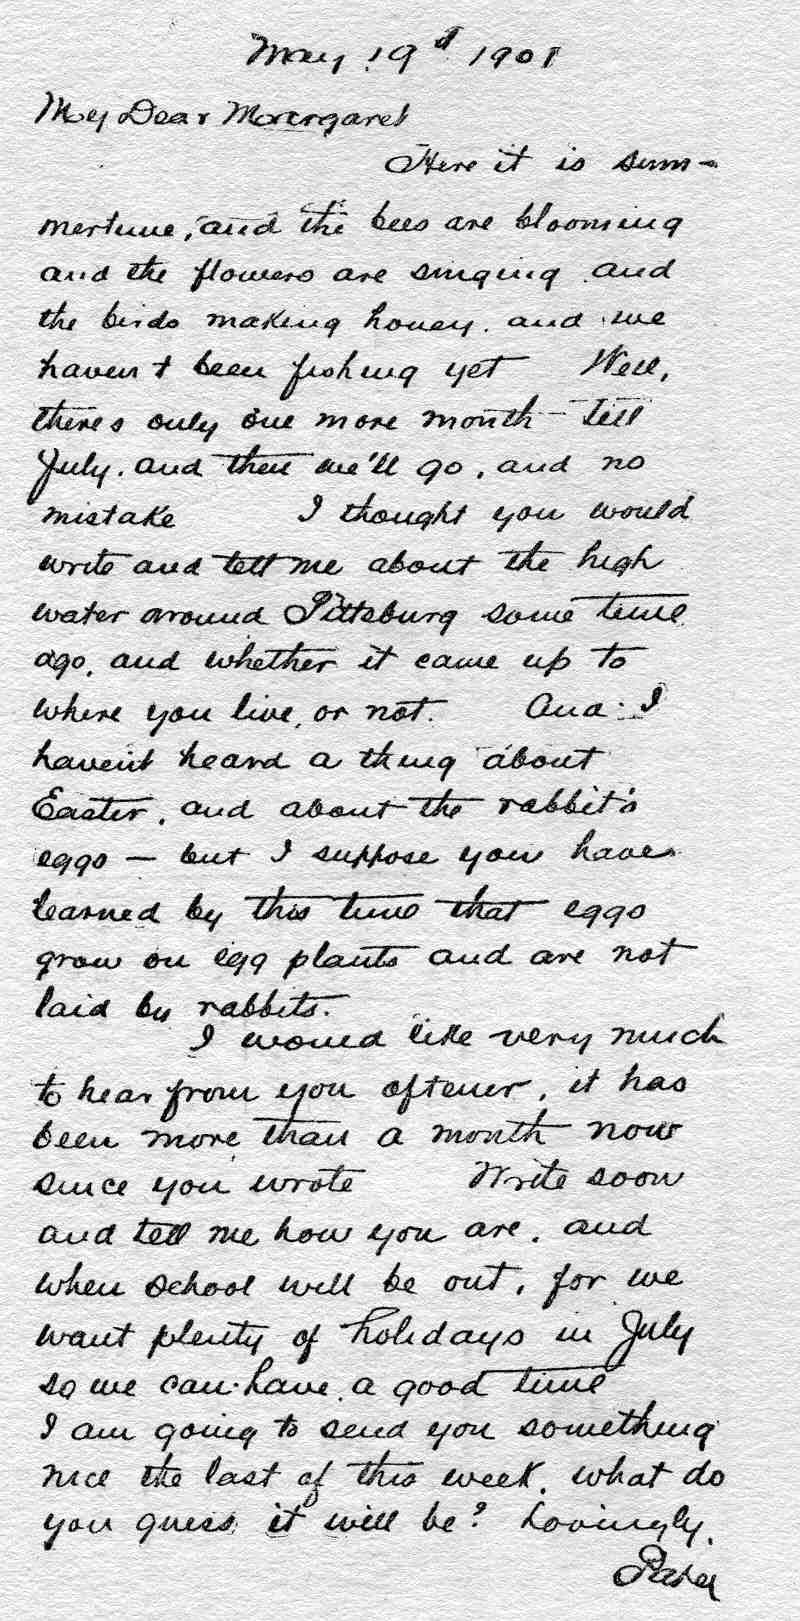 May 19th 1901
My Dear Margaret
Here it is sum-
mertime, and the bees are blooming
and the flowers are singing and
the birds making honey. and we
haven't been fishing yet Well,
there's only one more month till
July. and then we'll go, and no
mistake I thought you would
write and tell me about the high
water around Pittsburg some time
ago, and whether it came up to
where you live, or not. And I
haven't heard a thing about
Easter, and about the rabbit's
eggs — but I suppose you have
learned by this time that eggs
grow on egg plants and are not
laid by rabbits.
I would like very much
to hear from you oftener, it has
been more than a month now
since you wrote Write soon
and tell me how you are, and
when school will be out, for we
want plenty of holidays in July
so we can have a good time
I am going to send you something
nice the last of this week. What do
you guess it will be? Lovingly.